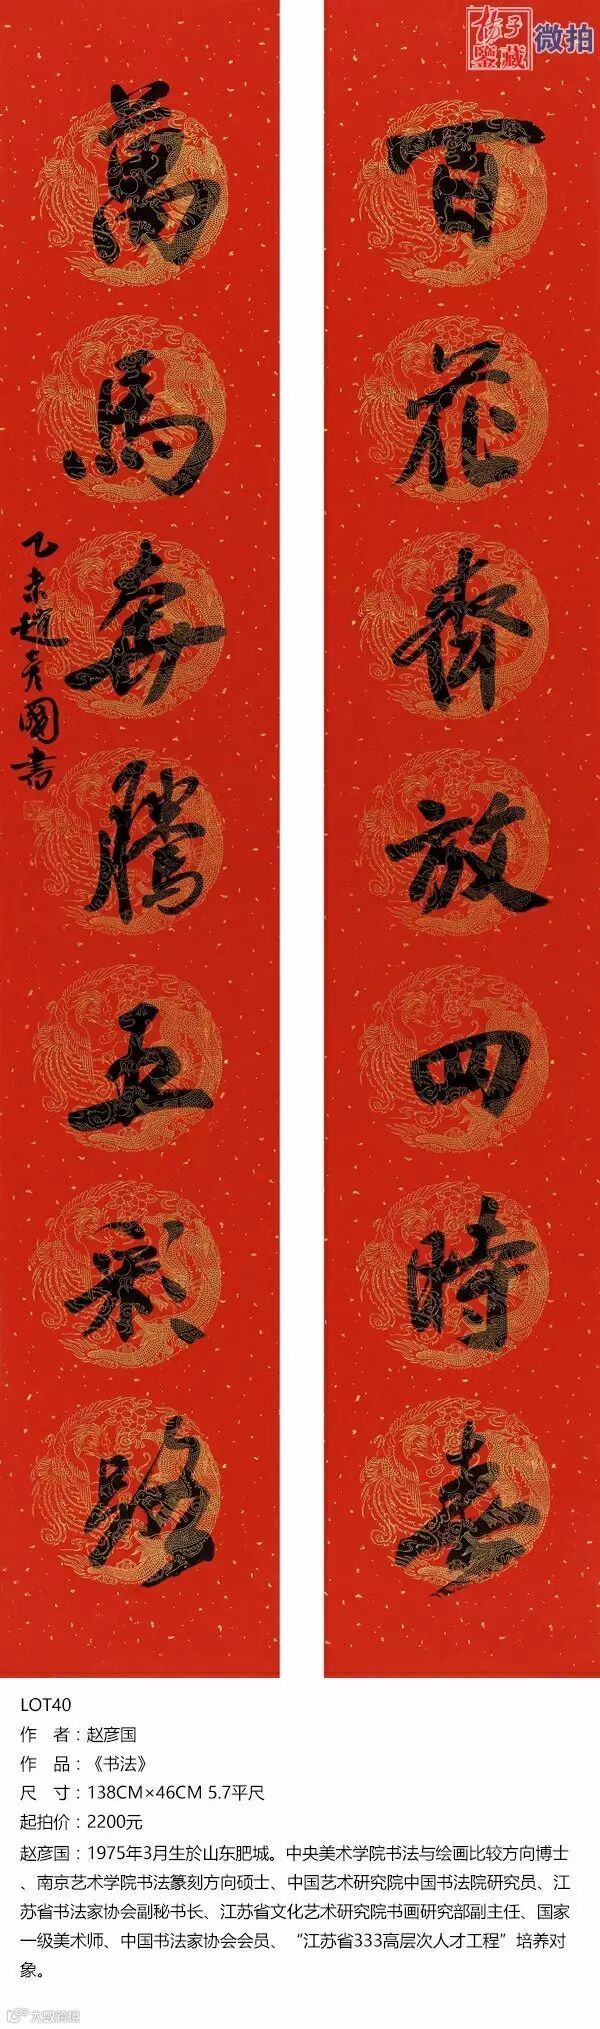 扬子
鉴藏
微拍
百花齊放四時春
萬馬奔騰五彩
乙未趙彦國書
LOT40
作 者：赵彦国
作 品：《书法》
尺 寸：138CM×46CM 5.7平尺
起拍价：2200元
赵彦国：1975年3月生於山东肥城。中央美术学院书法与绘画比较方向博士
、南京艺术学院书法篆刻方向硕士、中国艺术研究院中国书法院研究员、江
苏省书法家协会副秘书长、江苏省文化艺术研究院书画研究部副主任、国家
一级美术师、中国书法家协会会员、“江苏省333高层次人才工程”培养对
象。